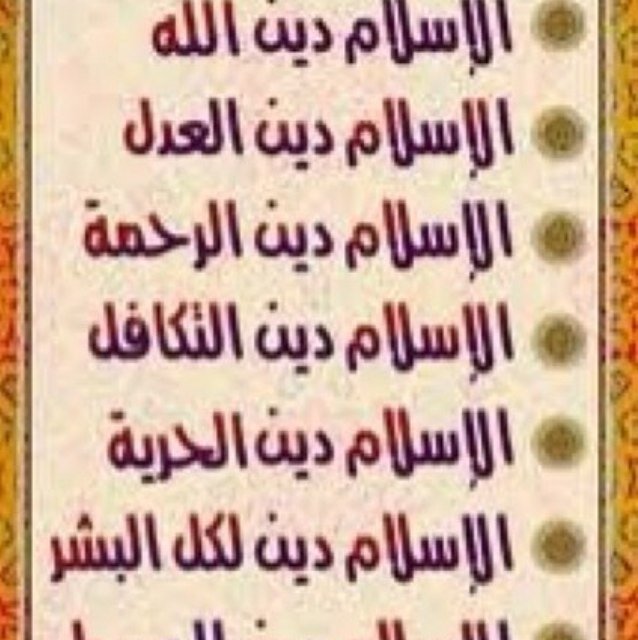 الإسلام دين الله
الإسلام دين العدل
الإسلام دين الرحمة
الإسلام دين التكافل
الإسلام دين الحرية
الإسلام دين لكل البشر
الإسلام دين